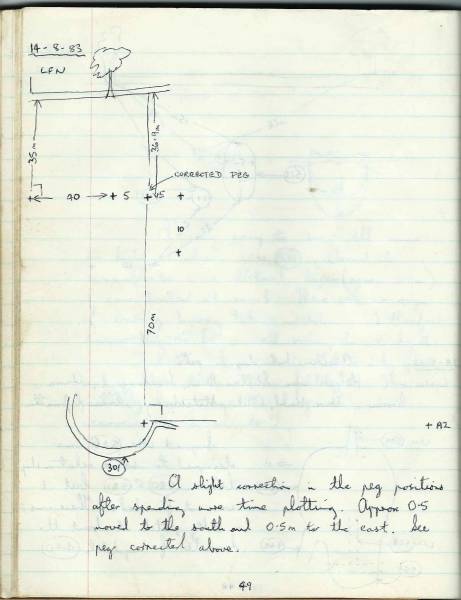 14-8-83
LFN
35m
36.9m
CORRECTED PEG
+ 40 + 5 + 45 +
10
+
70m
+
+ A2
301
A slight correction in the peg positions
after spending more time plotting. Approx 0.5
moved to the south and 0.5m to the east. See
peg corrected above.
49